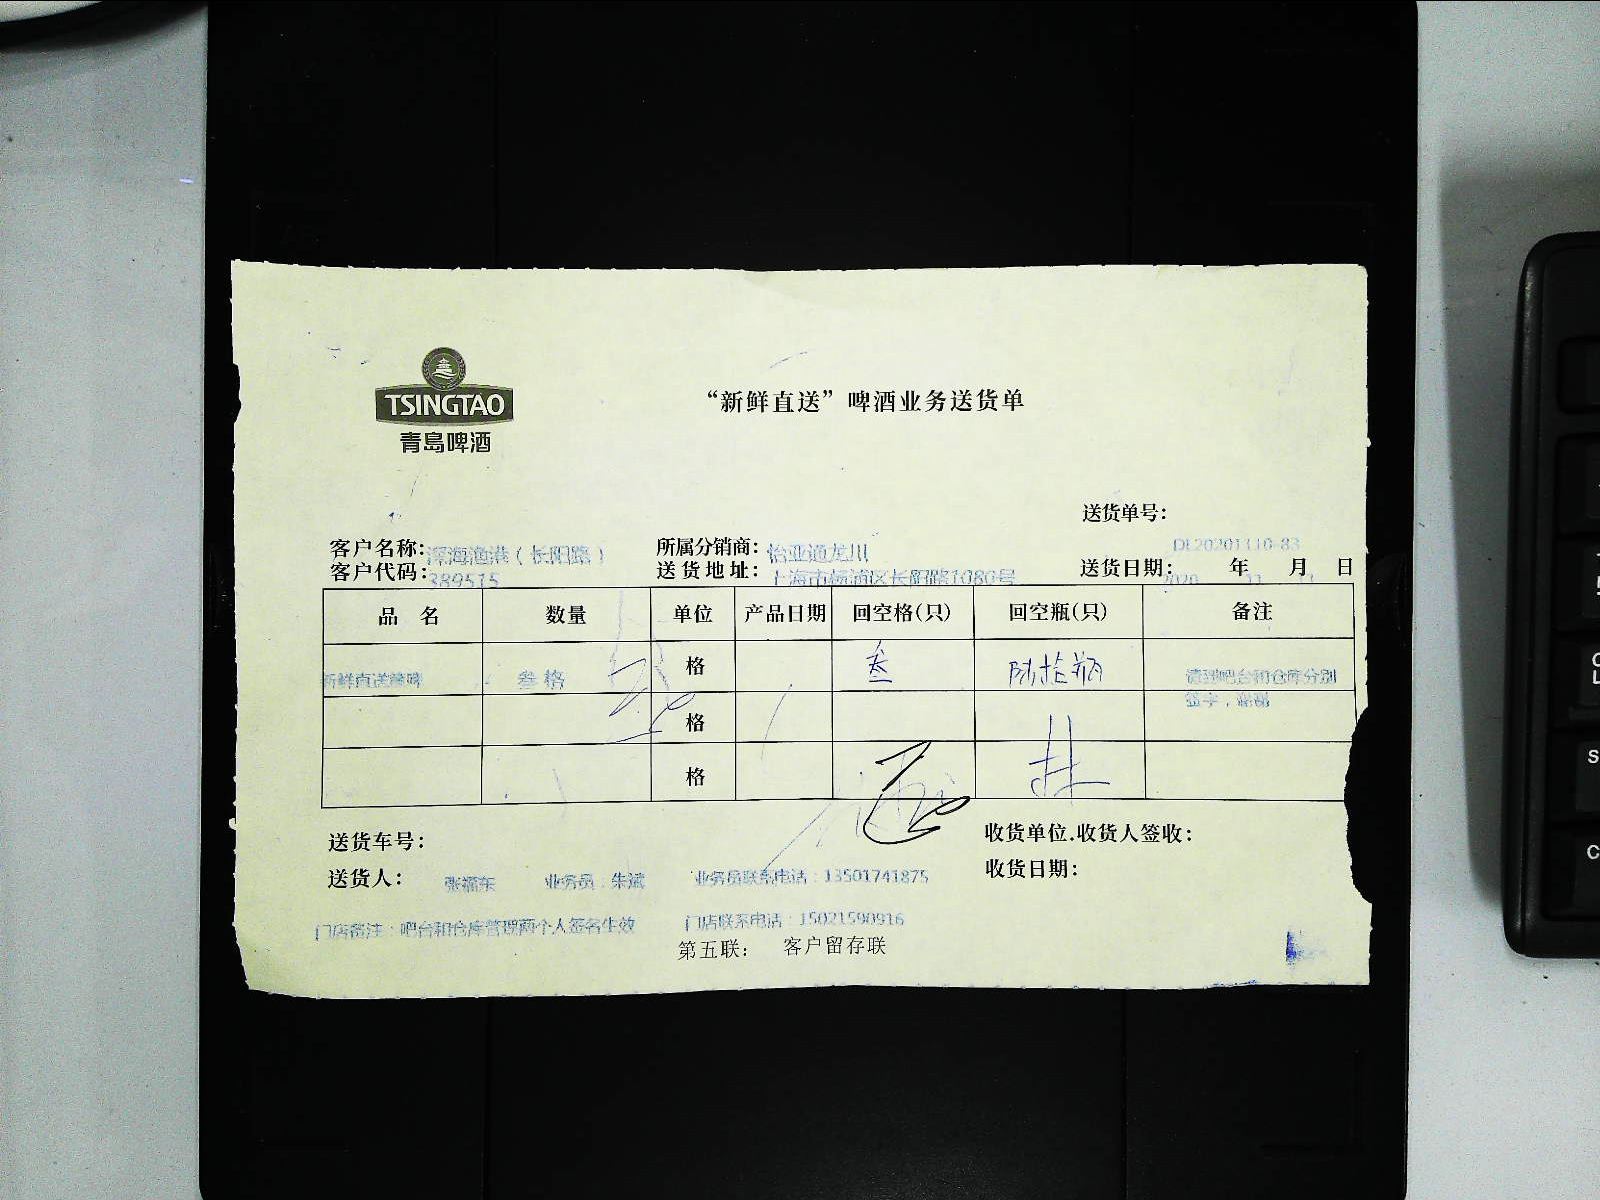 TSINGTAO
青島啤酒
“新鲜直送”啤酒业务送货单
送货单号：
DL20201110-83
客户名称：深海渔港（长阳路） 所属分销商：怡亚通龙川
客户代码：389515 送货地址：上海市杨浦区长阳路1080号 送货日期：2020 年 11 月 日
品 名 数量 单位 产品日期 回空格(只) 回空瓶(只) 备注
新鲜直送 叁格 格 叁 陆拾瓶 请理吧台和仓库分别
格 签字，谢谢
格
送货车号： 收货单位.收货人签收：
送货人： 张福东 业务员：朱斌 业务员联系电话：13501741875 收货日期：
门店备注：吧台和仓库管理两个人签名生效 门店联系电话：15021590916
第五联： 客户留存联